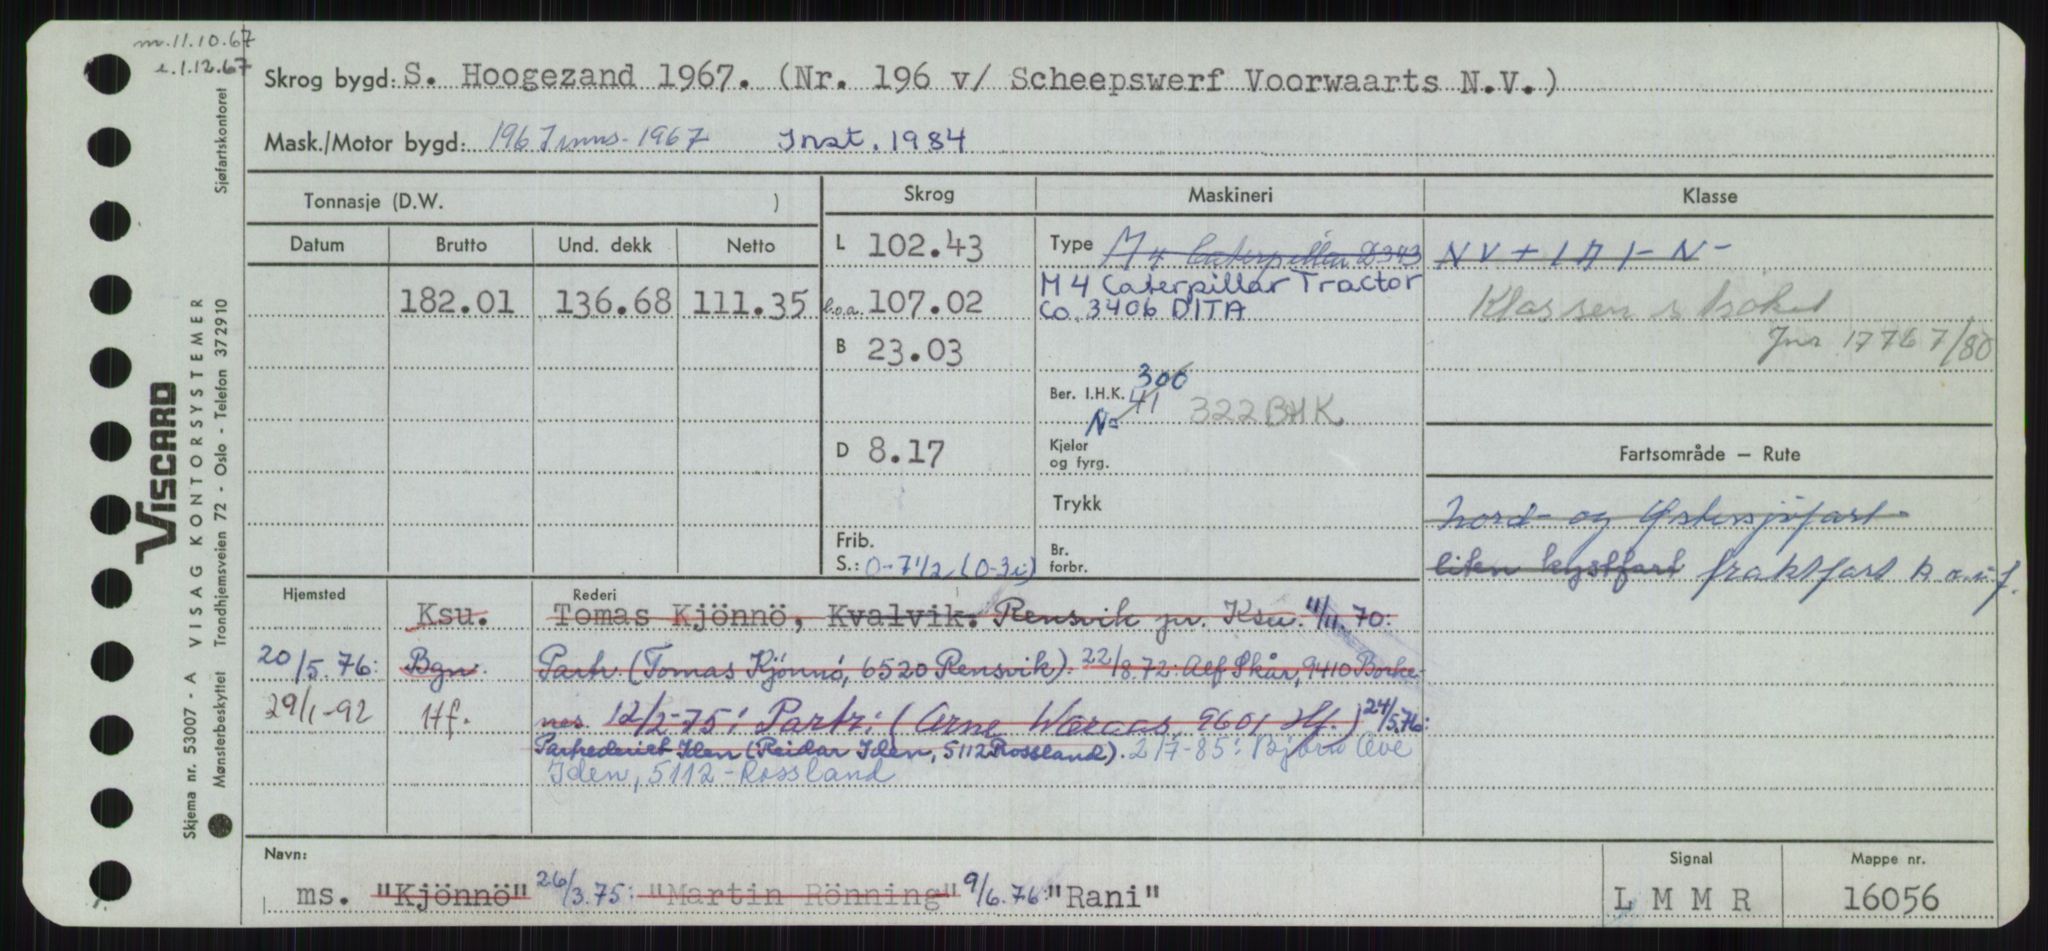 m.11.10.67
e.1.12.67
Skrog bygd: S. Hoogezand 1967. (Nr. 196 v/ Scheepswerf Voorwaarts N.V.)
Mask./Motor bygd: 1967 inns. 1967 Inst. 1984
Tonnasje (D.W. )
Skrog
Maskineri
Klasse
Datum Brutto Und. dekk Netto
182.01 136.68 111.35
L 102.43
l.o.a. 107.02
B 23.03
D 8.17
Frib.
S.: 0-7 1/2 (0-3i)
Type M 4 Caterpillar D343
M 4 Caterpillar Tractor
Co. 3406 DITA
Ber. I.H.K. 300
41
N= 322 BHK
Kjeler
og fyrg.
Trykk
Br.
forbr.
NV + 1A1 - N -
Klassen
Jnr 17767/80
Fartsområde — Rute
Nord- og Østersjøfart
liten kystfart fraktfart
Hjemsted Rederi
Ksu. Tomas Kjönnö, Kvalvik. Rensvik pr. Ksu. 11/11.70:
20/5.76: Bgn. Partr (Tomas Kjönnö, 6520 Rensvik). 22/8.72: Alf Skår, 9410 Borke-
29/1-92 Hf. nes. 12/2-75: Partr: (Arne Waraas, 9601 Hf.) 24/5.76:
Partrederiet Iden (Reidar Iden, 5112 Rossland). 2/7-85: Bjørn Ove
Iden, 5112 - Rossland
Navn:
ms. "Kjönnö" 26/3.75: "Martin Rönning" 9/6.76: "Rani"
Signal
L M M R
Mappe nr.
16056
Sjøfartskontoret
VISCARD
VISAG KONTORSYSTEMER
Trondhjemsveien 72 - Oslo - Telefon 372910
Skjema nr. 53007 - A
Mønsterbeskyttet